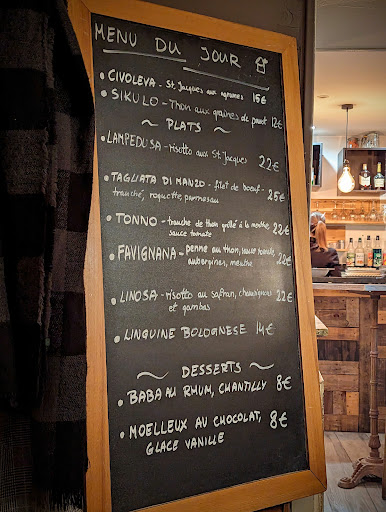 MENU DU JOUR
• CIVOLEVA - St. Jacques aux agrumes 15€
• SIKULO - Thon aux graines de pavot 12€
~ PLATS ~
• LAMPEDUSA - risotto aux St. Jacques 22€
• TAGLIATA DI MANZO - filet de boeuf
tranché, roquette parmesan 25€
• TONNO - tranche de thon grillé à la menthe 22€
sauce tomate
• FAVIGNANA - penne au thon, sauce tomate,
aubergines, menthe 22€
• LINOSA - risotto au safran, champignons 22€
et gambas
• LINGUINE BOLOGNESE 14€
~ DESSERTS ~
• BABA AU RHUM, CHANTILLY 8€
• MOELLEUX AU CHOCOLAT, 8€
GLACE VANILLE